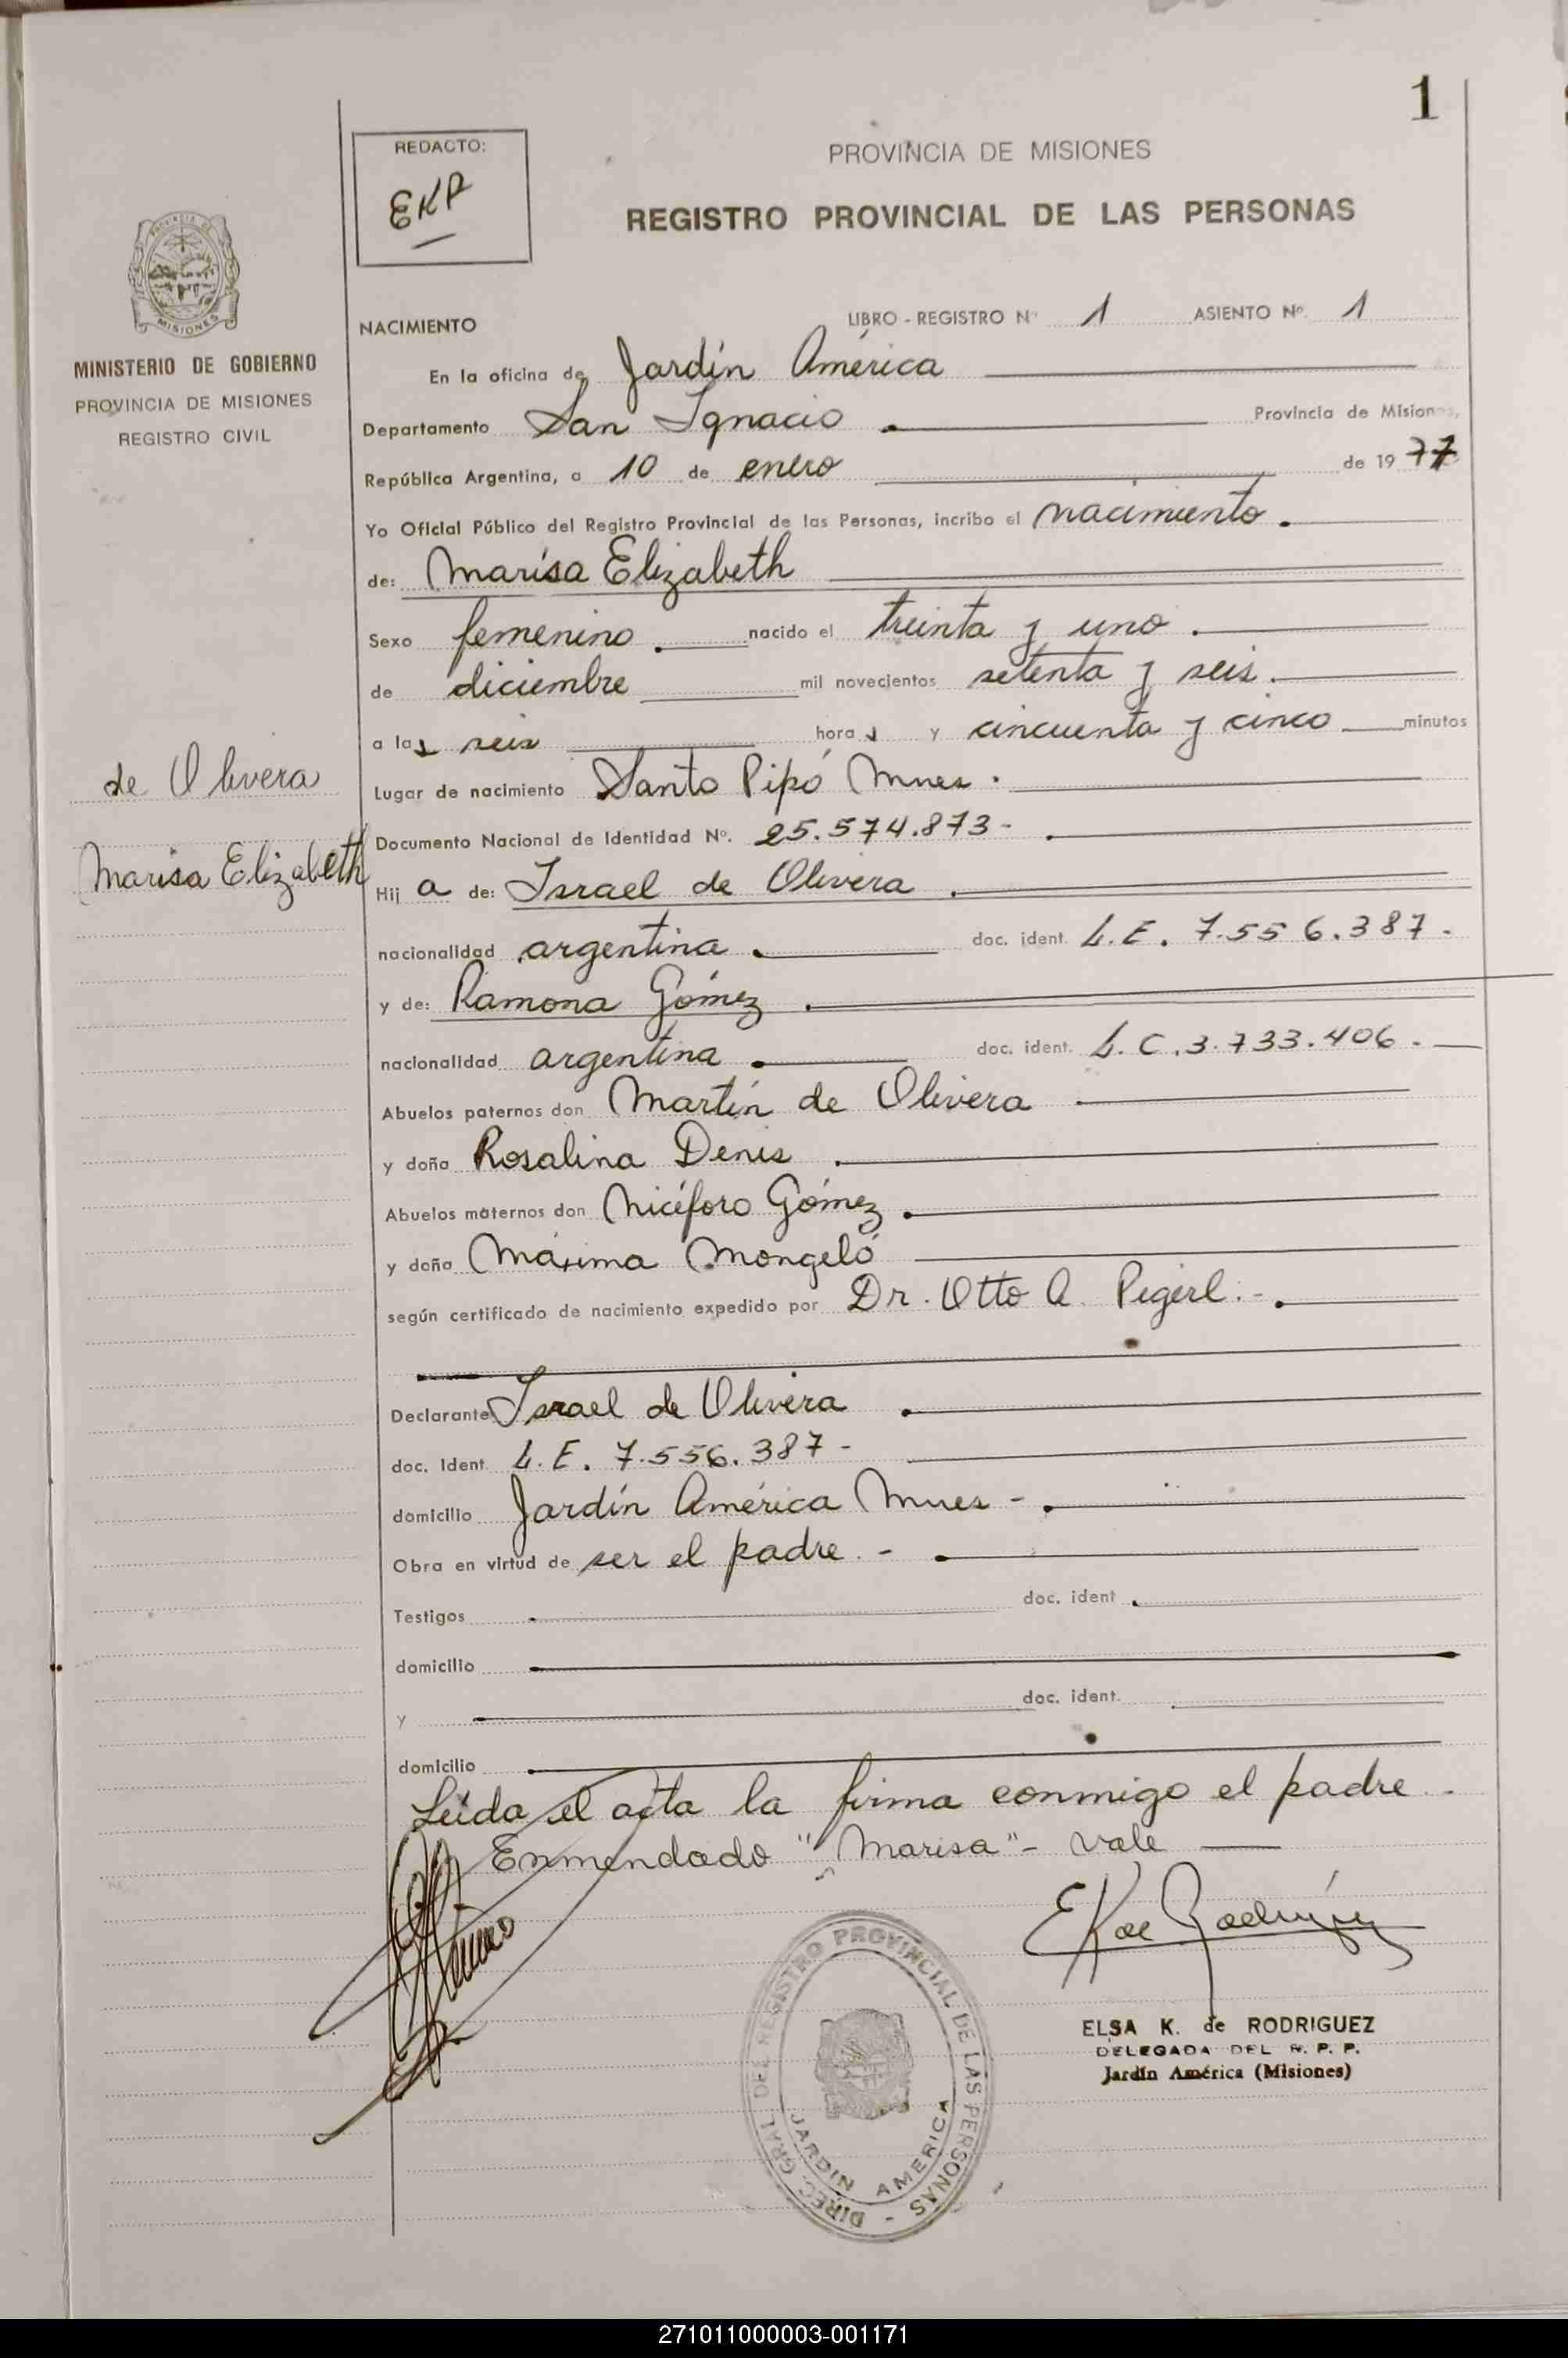 1
REDACTO:
EKR
PROVINCIA DE MISIONES
REGISTRO PROVINCIAL DE LAS PERSONAS
MISIONES
MINISTERIO DE GOBIERNO
PROVINCIA DE MISIONES
REGISTRO CIVIL
NACIMIENTO
LIBRO - REGISTRO Nº 1 ASIENTO Nº 1
En la oficina de Jardín América
Departamento San Ignacio Provincia de Misiones,
República Argentina, a 10 de enero de 1977
Yo Oficial Público del Registro Provincial de las Personas, incribo el nacimiento.
de: Marisa Elizabeth
Sexo femenino. nacido el treinta y uno.
de diciembre mil novecientos setenta y seis.
a las seis horas y cincuenta y cinco minutos
Lugar de nacimiento Santo Pipó Mnes.
de Olivera
Marisa Elizabeth
Documento Nacional de Identidad Nº. 25.574.873-
Hij a de: Israel de Olivera.
nacionalidad argentina. doc. ident. L.E. 7.556.387.
y de: Ramona Gómez.
nacionalidad argentina. doc. ident. L.C. 3.733.406.
Abuelos paternos don Martín de Olivera
y doña Rosalina Denis.
Abuelos maternos don Nicéforo Gómez.
y doña Máxima Mongeló
según certificado de nacimiento expedido por Dr. Otto A. Pegerl.-
Declarante Israel de Olivera.
doc. Ident. L.E. 7.556.387-
domicilio Jardín América Mnes-.
Obra en virtud de ser el padre.-
Testigos doc. ident.
domicilio
y doc. ident.
domicilio
Leída el acta la firma conmigo el padre.-
Enmendado "Marisa"- Vale
E K de Rodríguez
DIREC. GRAL DEL REGISTRO PROVINCIAL DE LAS PERSONAS -
JARDIN AMERICA
ELSA K. de RODRIGUEZ
DELEGADA DEL R. P. P.
Jardín América (Misiones)
271011000003-001171